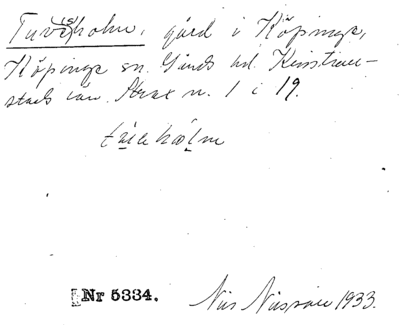 Tuvesholm, gård i Köpinge,
Köpinge sn. Gärds hd. Kristian-
stads län. Strax n. 1 i 19.
Nr 5334. Nils Nilsson 1933.